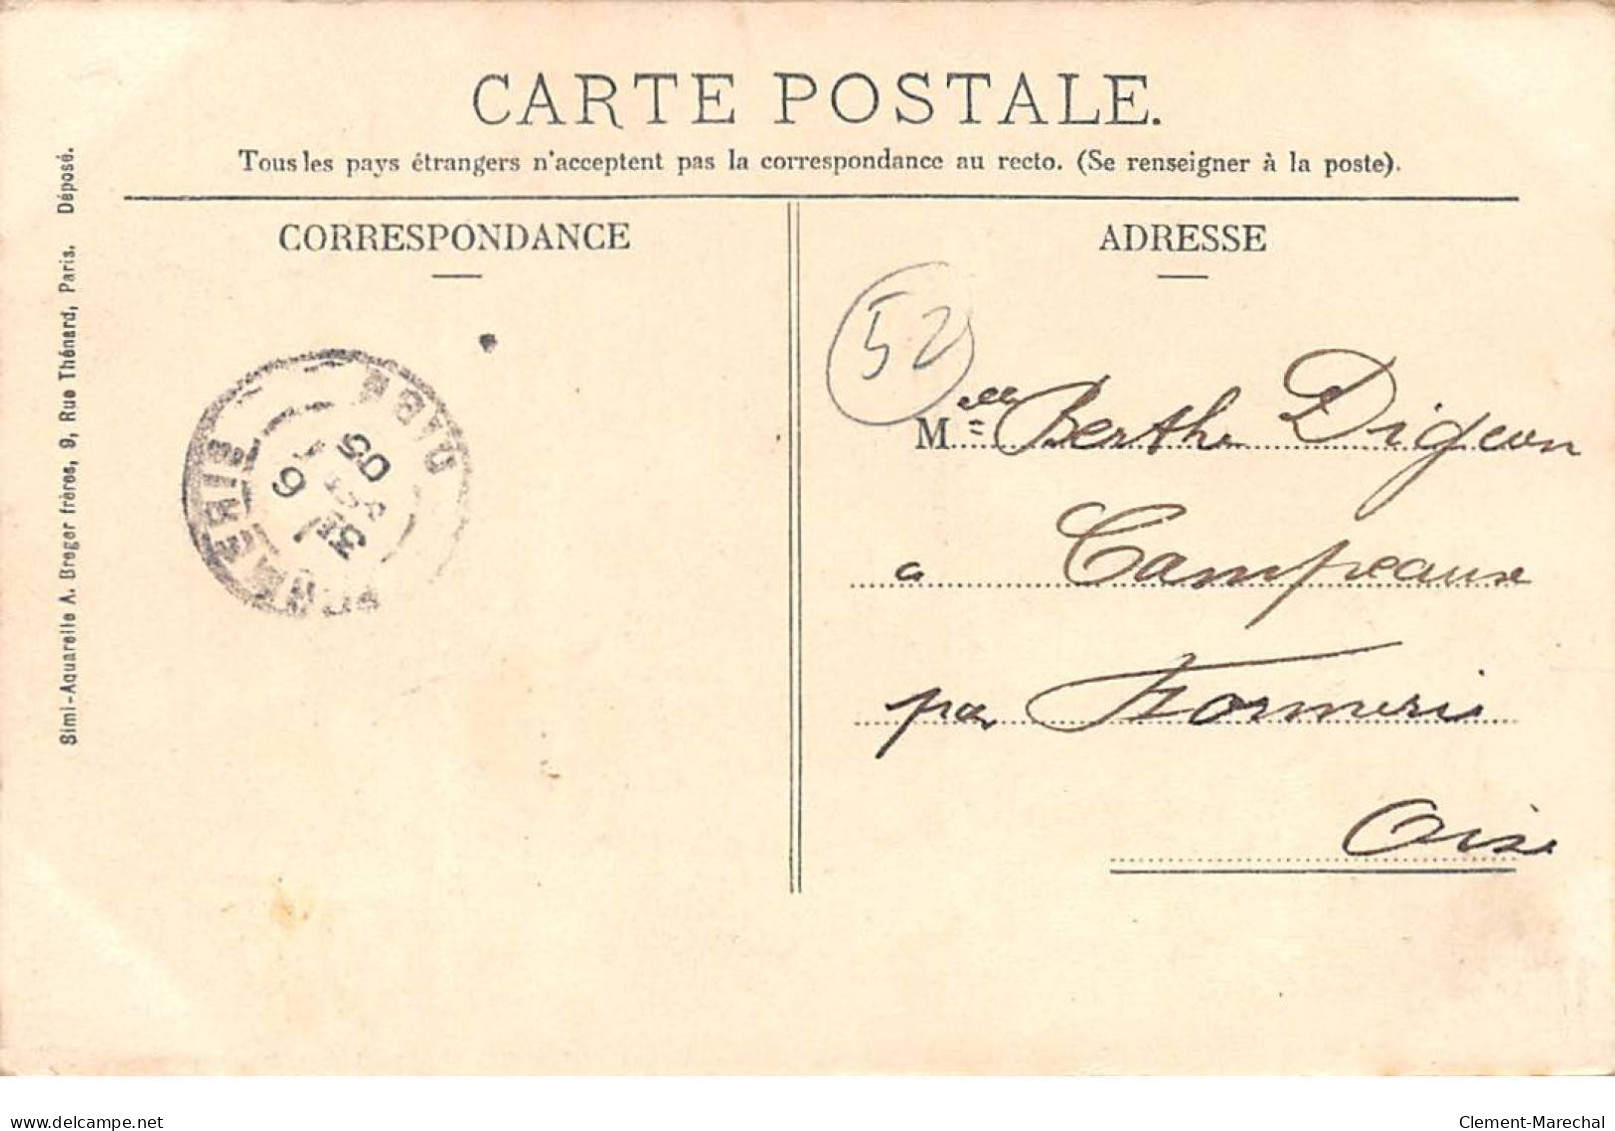 CARTE POSTALE.
Tous les pays étrangers n'acceptent pas la correspondance au recto. (Se renseigner à la poste).
CORRESPONDANCE
ADRESSE
52
Mlle Berthe Digeon
a Campeaux
par Formerie
Oise
FORMERIE
6
31
05
Simi-Aquarelle A. Breger frères, 9, Rue Thénard, Paris. Déposé.
www.delcampe.net
Clement-Marechal